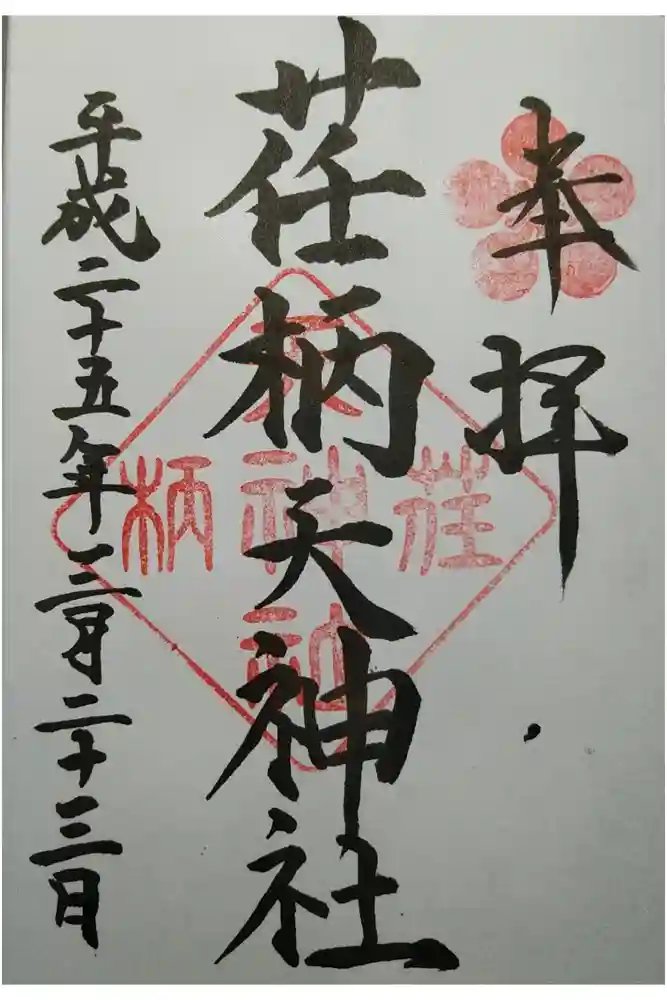 奉拝
荏柄天神社
平成二十五年三月二十三日
天
荏神柄
社